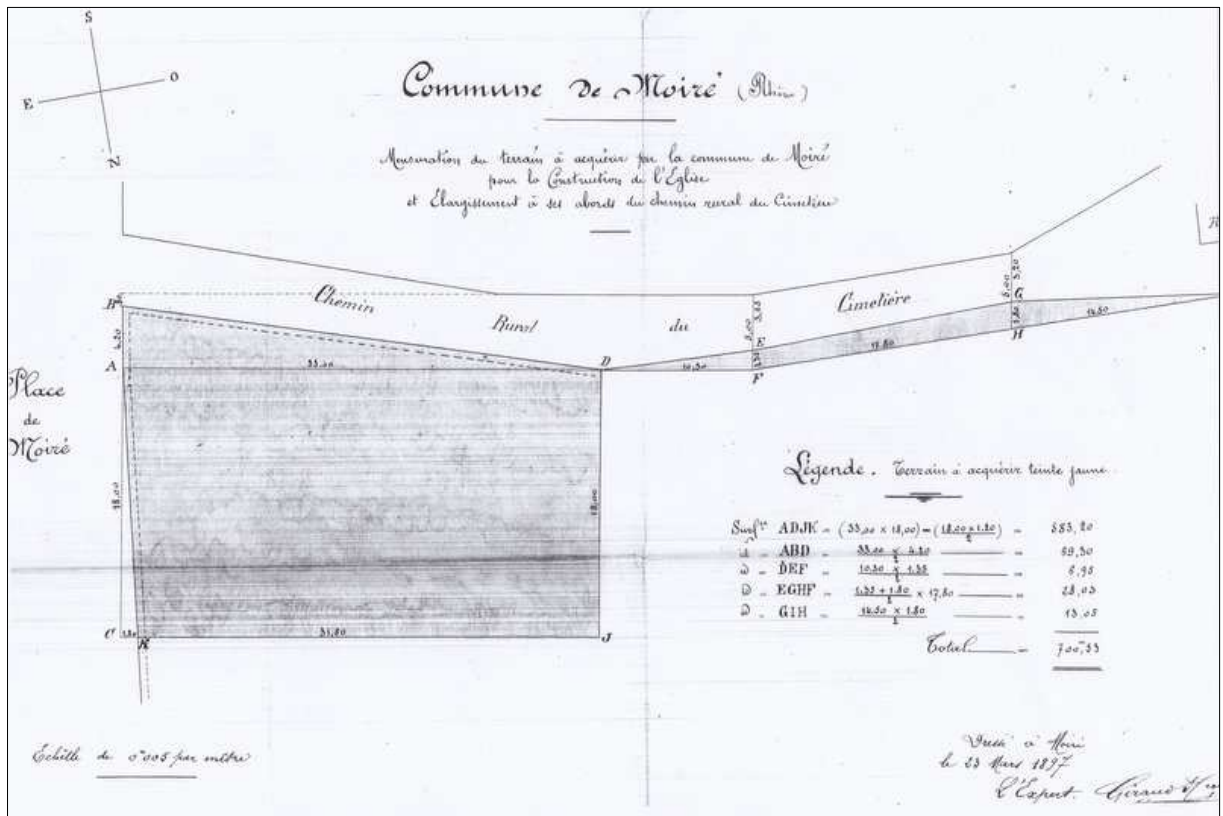 S
E
O
N
Commune de Moiré (Rhône)
Mensuration du terrain à acquérir par la commune de Moiré
pour la Construction de l'Église
et Élargissement à ses abords du chemin rural du Cimetière
Chemin Rural du Cimetière
Place
de
Moiré
B
4,20
A
33,00
D
18,00
18,00
C
1,20
K
31,80
J
10,30
5,00
5,65
E
F
17,80
5,00
5,20
G
1,80
H
14,50
Légende. Terrain à acquérir teinte jaune
Surf^ce ADJK = (33,00 x 18,00) - (18,00 x 1,20 / 2) = 583,20
d° = ABD = 33,00 x 4,20 / 2 = 69,30
d° = DEF = 10,30 x 1,35 / 2 = 6,95
d° = EGHF = 1,35 + 1,80 / 2 x 17,80 = 28,03
d° = GIH = 14,50 x 1,80 / 2 = 13,05
Total = 700,53
Échelle de 0,005 par mètre
Dressé à Moiré
le 23 Mars 1897
L'Expert. Giraud